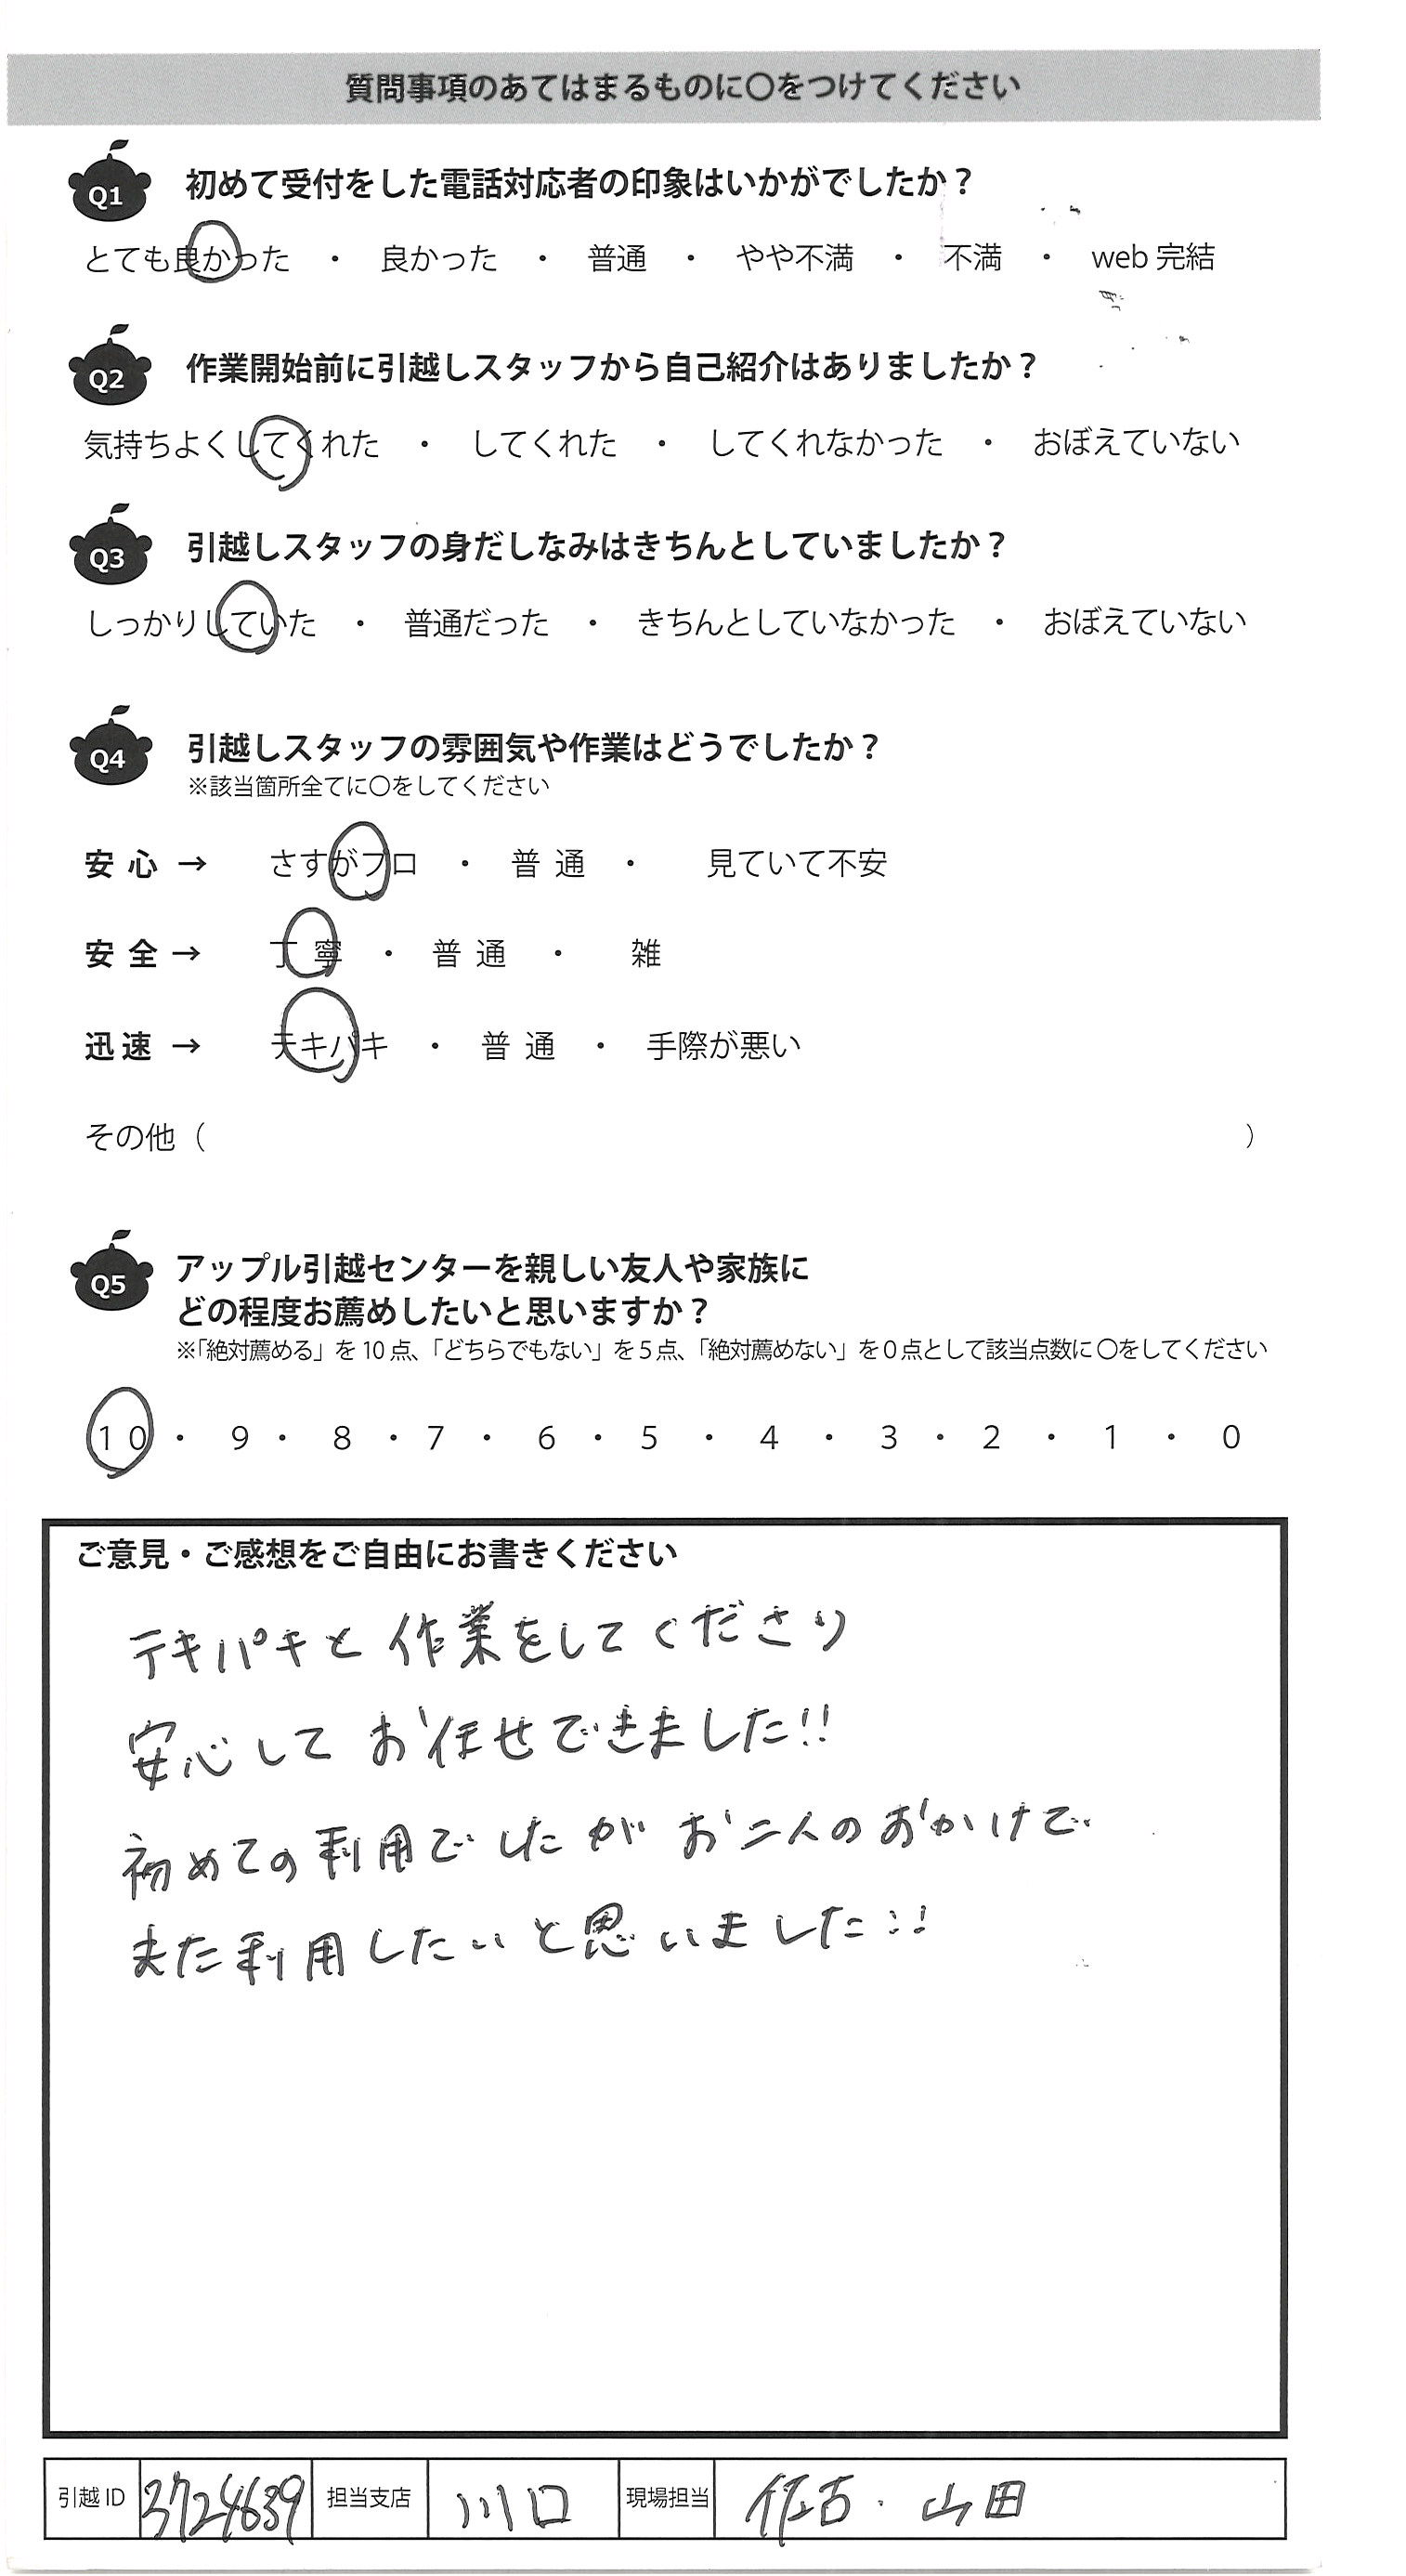 質問事項のあてはまるものに〇をつけてください
Q1 初めて受付をした電話対応者の印象はいかがでしたか？
とても良かった ・ 良かった ・ 普通 ・ やや不満 ・ 不満 ・ web 完結
Q2 作業開始前に引越しスタッフから自己紹介はありましたか？
気持ちよくしてくれた ・ してくれた ・ してくれなかった ・ おぼえていない
Q3 引越しスタッフの身だしなみはきちんとしていましたか？
しっかりしていた ・ 普通だった ・ きちんとしていなかった ・ おぼえていない
Q4 引越しスタッフの雰囲気や作業はどうでしたか？
※該当箇所全てに〇をしてください
安心 → さすがプロ ・ 普通 ・ 見ていて不安
安全 → 丁寧 ・ 普通 ・ 雑
迅速 → テキパキ ・ 普通 ・ 手際が悪い
その他（ ）
Q5 アップル引越センターを親しい友人や家族に
どの程度お薦めしたいと思いますか？
※「絶対薦める」を 10 点、「どちらでもない」を 5 点、「絶対薦めない」を 0 点として該当点数に 〇をしてください
10 ・ 9 ・ 8 ・ 7 ・ 6 ・ 5 ・ 4 ・ 3 ・ 2 ・ 1 ・ 0
ご意見・ご感想をご自由にお書きください
テキパキと作業をしてくださり
安心してお任せできました!!
初めての利用でしたがお二人のおかげで
また利用したいと思いました!!
引越 ID 3724639 担当支店 川口 現場担当 佐古・山田